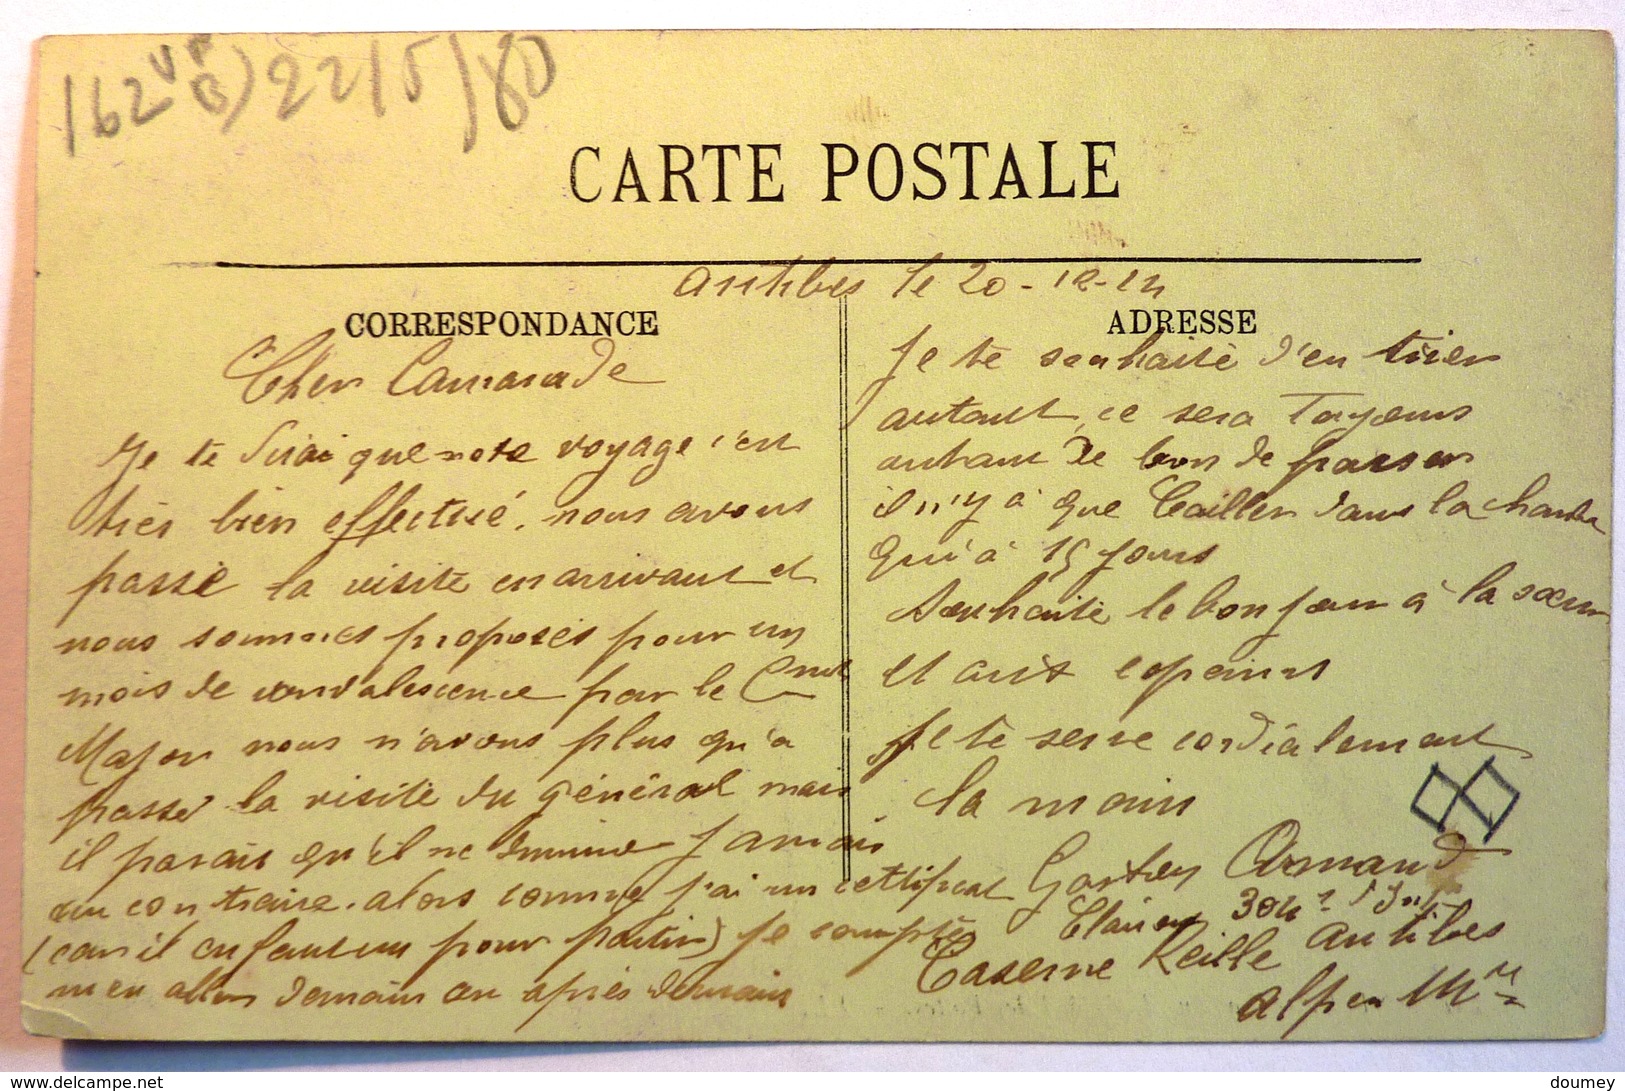 162
22/5/80
CARTE POSTALE
Antibes le 20-12-14
CORRESPONDANCE
Cher Camarade
Je te dirai que notre voyage c'est
très bien effectué. nous avons
passé la visite en arrivant et
nous sommes proposés pour un
mois de convalescence par le
Major nous n'avons plus qu'a
passé la visite du général mais
il parait qu'il ne diminue jamais
au contraire. alors comme j'ai un certificat
(car il en faut un pour partir) je compte
m'en aller demain ou après demain
ADRESSE
Je te souhaite d'en tirer
autant, ce sera Toujours
autant de bon de passer
il n'y à que Cailler dans la chambre
qui à 15 jours
Souhaite le bon jour à la sœur
et aux copains
Je te serre cordialement
la main
Armand
Clairon
Caserne Reille Antibes
Alpes Mmes
https://www.delcampe.net
doumey